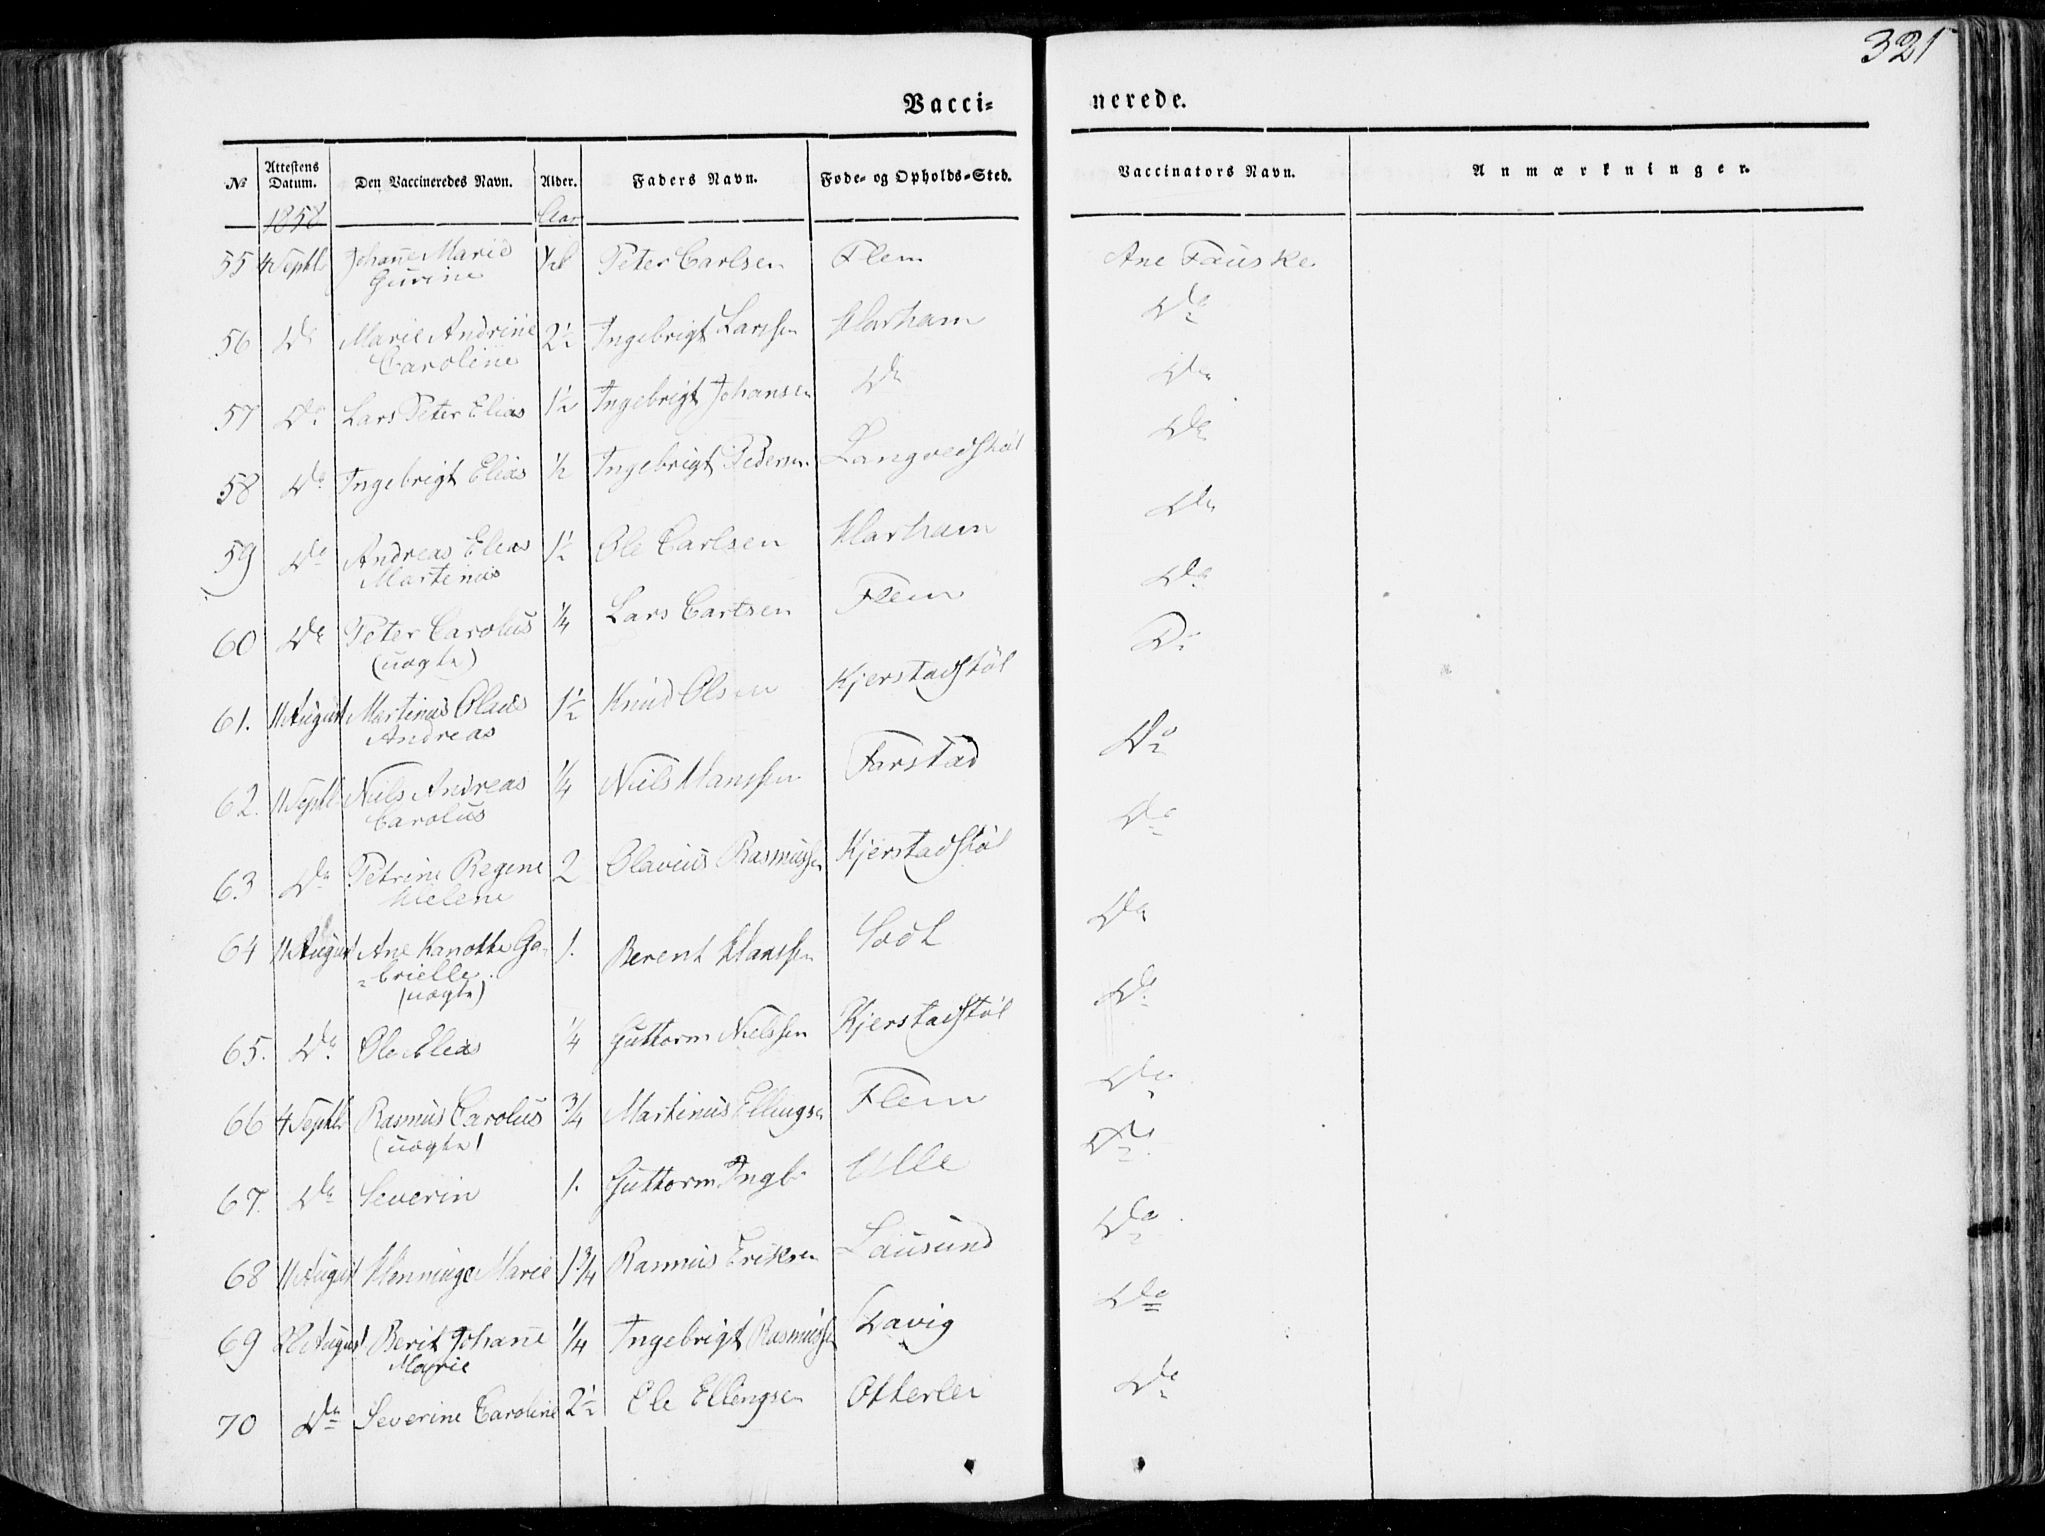 321
Vacci- nerede.
№ Attestens Datum. Den Vaccineredes Navn. Alder. Faders Navn. Føde- og Opholds-Sted. Vaccinators Navn. Anmærkninger.
1858 Aar
55 4 Septbr Johanne Marie Peter Carlsen Flem Ane Fauske
Gurine
56 Do Marie Andrine 2½ Ingebrigt Larssen Harham Do
Caroline
57 Do Lars Peter Elias 1½ Ingebrigt Johansen Do Do
58 Do Ingebrigt Elias ½ Ingebrigt Pedersen Longvedstøl Do
59 Do Andreas Elias 1½ Ole Carlsen Harham Do
Martinus
60 Do Peter Carolus ¼ Lars Carlsen Flem Do
(uægte)
61. 11 August Martinus Olaus 1½ Knud Olsen Kjerstadstøl Do
Andreas
62. 11 Septbr Niels Andreas ¼ Niels Hanssen Farstad Do
Carolus
63 Do Petrine Regine 2 Olavius Rasmussen Kjerstadstøl Do
Helene
64 11 August Ane Kanotte Ga- 1. Berent Hanssen Do
-brielle.
(uægte)
65. Do Ole Elias ¼ Guttorm Nielssen Kjerstadstøl Do
66 4 Septbr Rasmus Carolus ¾ Martinus Ellingsen Flem Do
(uægte)
67. Do Severin 1. Guttorm Ingb. Ulle Do
68 11 August Henninge Marie 1¾ Rasmus Eriksen Lausund Do
69 22 August Berit Johanne ¼ Ingebrigt Rasmussen Davig Do
Marie
70 Do Severine Caroline 2½ Ole Ellingsen Otterlei Do